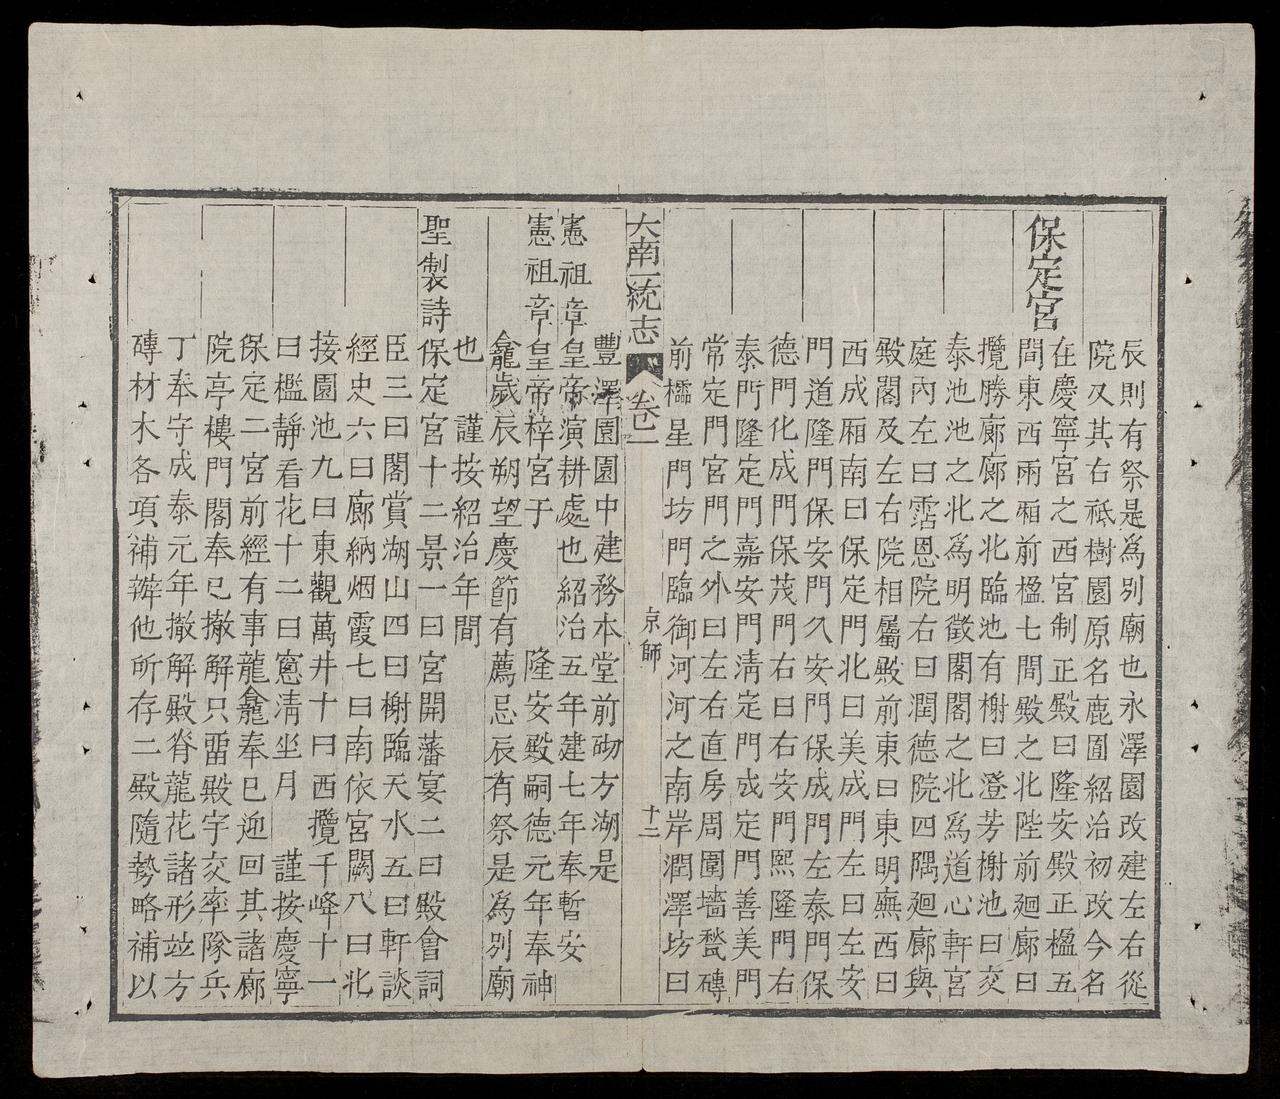 辰則有祭是為別廟也永澤園改建左右從
院又其右祗樹園原名鹿囿紹治初改今名
保定宮
在慶寧宮之西宮制正殿曰隆安殿正楹五
間東西兩廂前楹七間殿之北陛前廻廊曰
攬勝廊廊之北臨池有榭曰澄芳榭池曰交
泰池池之北為明徵閣閣之北為道心軒宮
庭內左曰霑恩院右曰潤德院四隅廻廊與
殿閣及左右院相屬殿前東曰東明廡西曰
西成廂南曰保定門北曰美成門左曰左安
門道隆門保安門久安門保成門左泰門保
德門化成門保茂門右曰右安門熙隆門右
泰門隆定門嘉安門清定門成定門善美門
常定門宮門之外曰左右直房周圍墻甃磚
前櫺星門坊門臨御河河之南岸潤澤坊曰
大南一統志 卷一 京師 十二
豐澤園園中建務本堂前砌方湖是
憲祖章皇帝演耕處也紹治五年建七年奉暫安
憲祖章皇帝梓宮于 隆安殿嗣德元年奉神
龕歲辰朔望慶節有薦忌辰有祭是為別廟
也 謹按紹治年間
聖製詩保定宮十二景一曰宮開藩宴二曰殿會詞
臣三曰閣賞湖山四曰榭臨天水五曰軒談
經史六曰廊納烟霞七曰南依宮闕八曰北
接園池九曰東觀萬井十曰西攬千峰十一
曰檻靜看花十二曰窻清坐月 謹按慶寧
保定二宮前經有事龍龕奉已迎回其諸廊
院亭樓門閣奉已撤解只畱殿宇交率隊兵
丁奉守成泰元年撤解殿脊龍花諸形竝方
磚材木各項補辦他所存二殿隨勢略補以